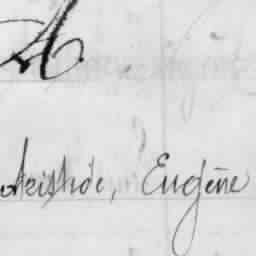 A
Aristide, Eugène